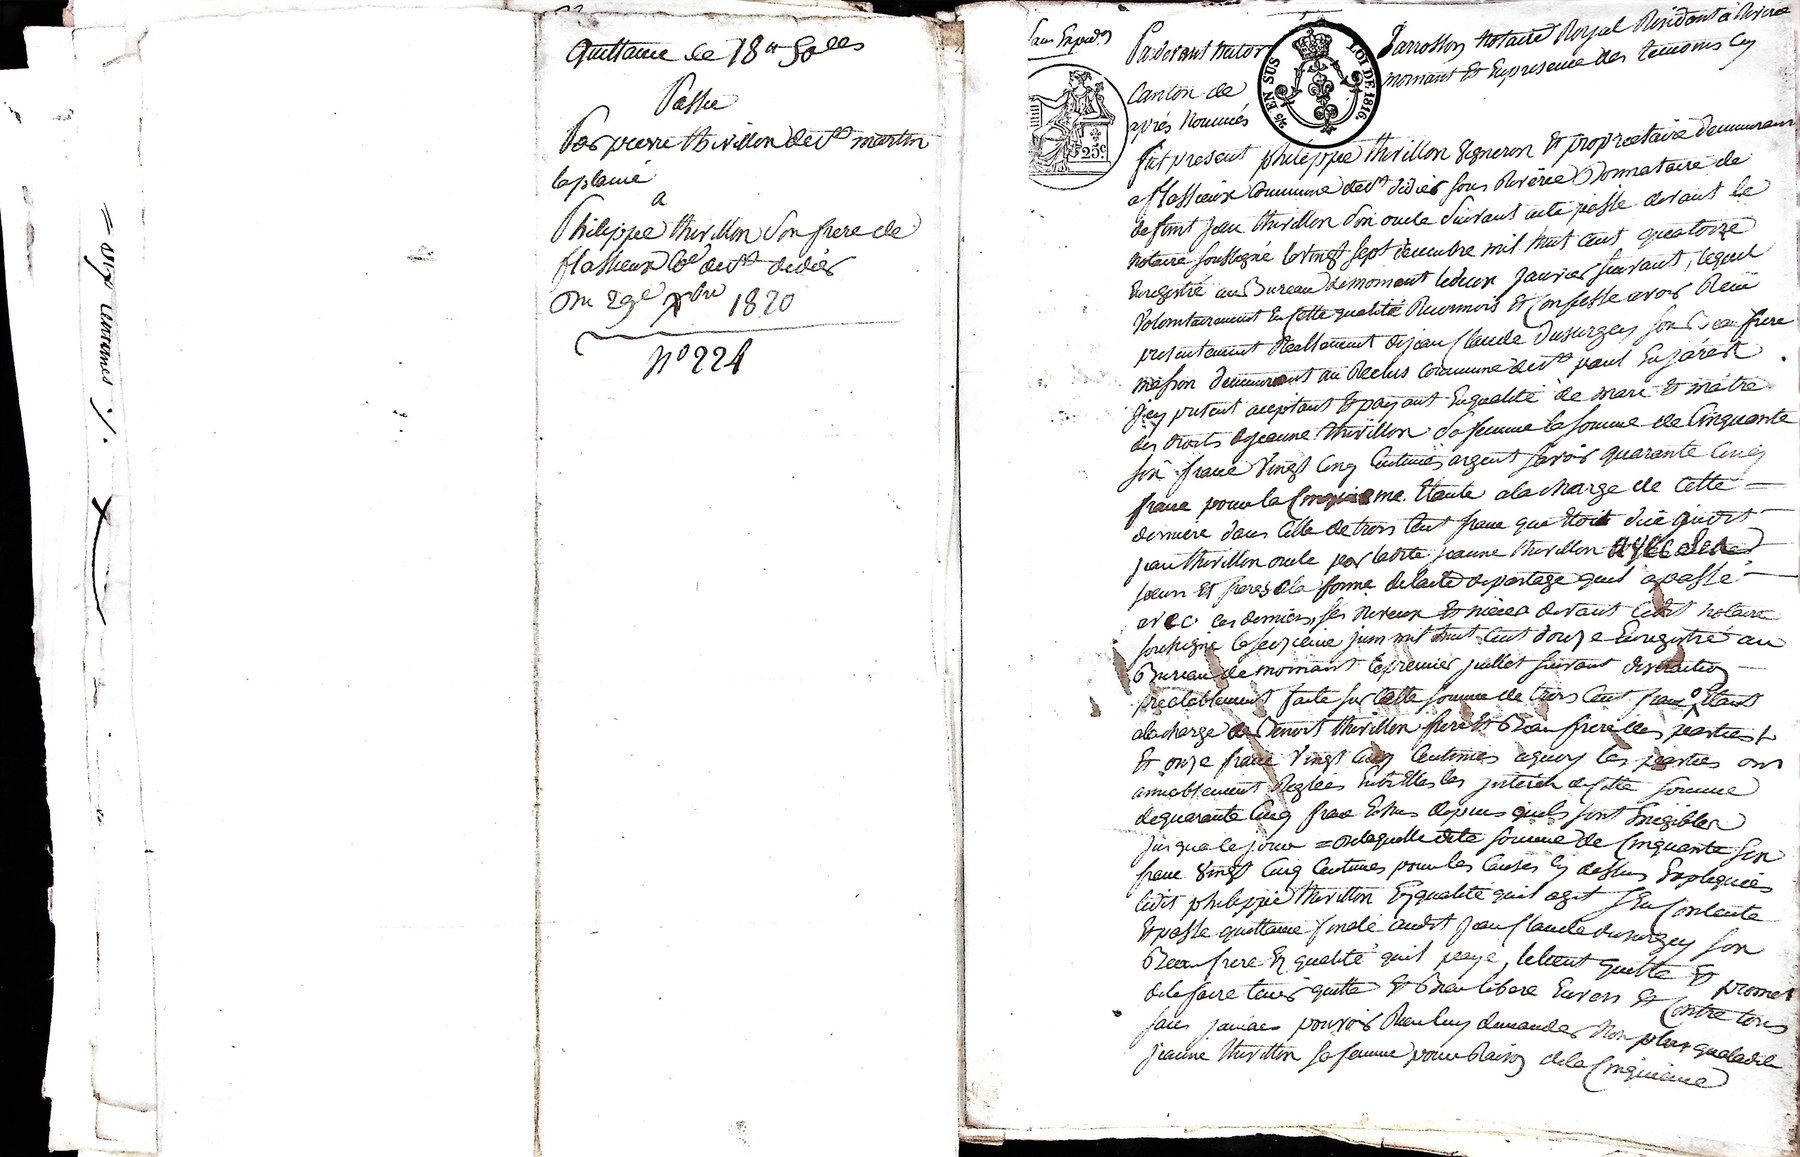 = dix centimes ./.
Quittance de 18 fr 50 ces
Passée
Par pierre thivillon de St martin
laplaine
a
Philippe thivillon son frere de
flassieux Cne de St didier
Du 29e Xbre 1820
No 224
sans Expedn
Pardevant
Jarrosson Notaire Royal Résidant a Riverie
Canton de
mornant Et Enpresence des temoins Cy
après Nommés
EN SUS
LOI DE 1816.
25c
fut present philippe thivillon Vigneron Et proprietaire demeurant
a flassieux Commune de St didier sous Riverie Donnataire de
defunt jean thivillon son oncle suivant acte passé devant le
Notaire soussigné le Vingt sept decembre mil huit Cent quatorze
Enregistré au Bureau demornant ledeux janvier suivant, lequel
Volontairement En Cette qualité Reconnois Et Confesse avoir Reçu
presentement Reellement de jean Claude Dusurgey son Beau frere
masson demeurant au Reclus Commune de St paul En jarest
Icy present aceptant Et payant Enqualité de mari Et maitre
des droits de jeanne thivillon sa femme la somme de Cinquante
six franc Vingt Cinq Centimes argent savoir quarante Cinq
franc pour la Cinquieme Etante ala charge de Cette
derniere dans Celle de trois Cent franc que Etoit due audit
jean thivillon oncle par ladite jeanne thivillon avec ses
soeurs Et freres ala forme delacte departage quil apassé
avec ces derniers, ses Neveux Et nieces devant Ledit notaire
soussigné le seizieme juin mil huit Cent douze Enregistré au
Bureau de mornant le premier juillet suivant distraction
prealablement faite sur Cette somme de trois Cent franc Etant
ala charge de Benoit thivillon frere Et Beau frere des parties
Et onze franc Vingt Cinq Centimes aquoy les parties ont
amiablement Reglées Entr'Elles les interets de Cette somme
dequarante Cinq franc Echus depuis quils sont Exigibles
jusqua le jour = De laquelle dite somme de Cinquante six
franc Vingt Cinq Centimes pour les Causes Cy dessus Expliquées
ledit philippe thivillon Enqualité quil agit sEn Contente
Et passe quittance finale audit jean Claude dusurgey son
Beau frere En qualité quil paye, letient quitte Et promet
de le faire tenir quitte Et Bien libere Envers Et Contre tous
sans jamais pouvoir Rien luy demander Non plus qualadite
jeanne thivillon sa femme pour Raison de la Cinquieme